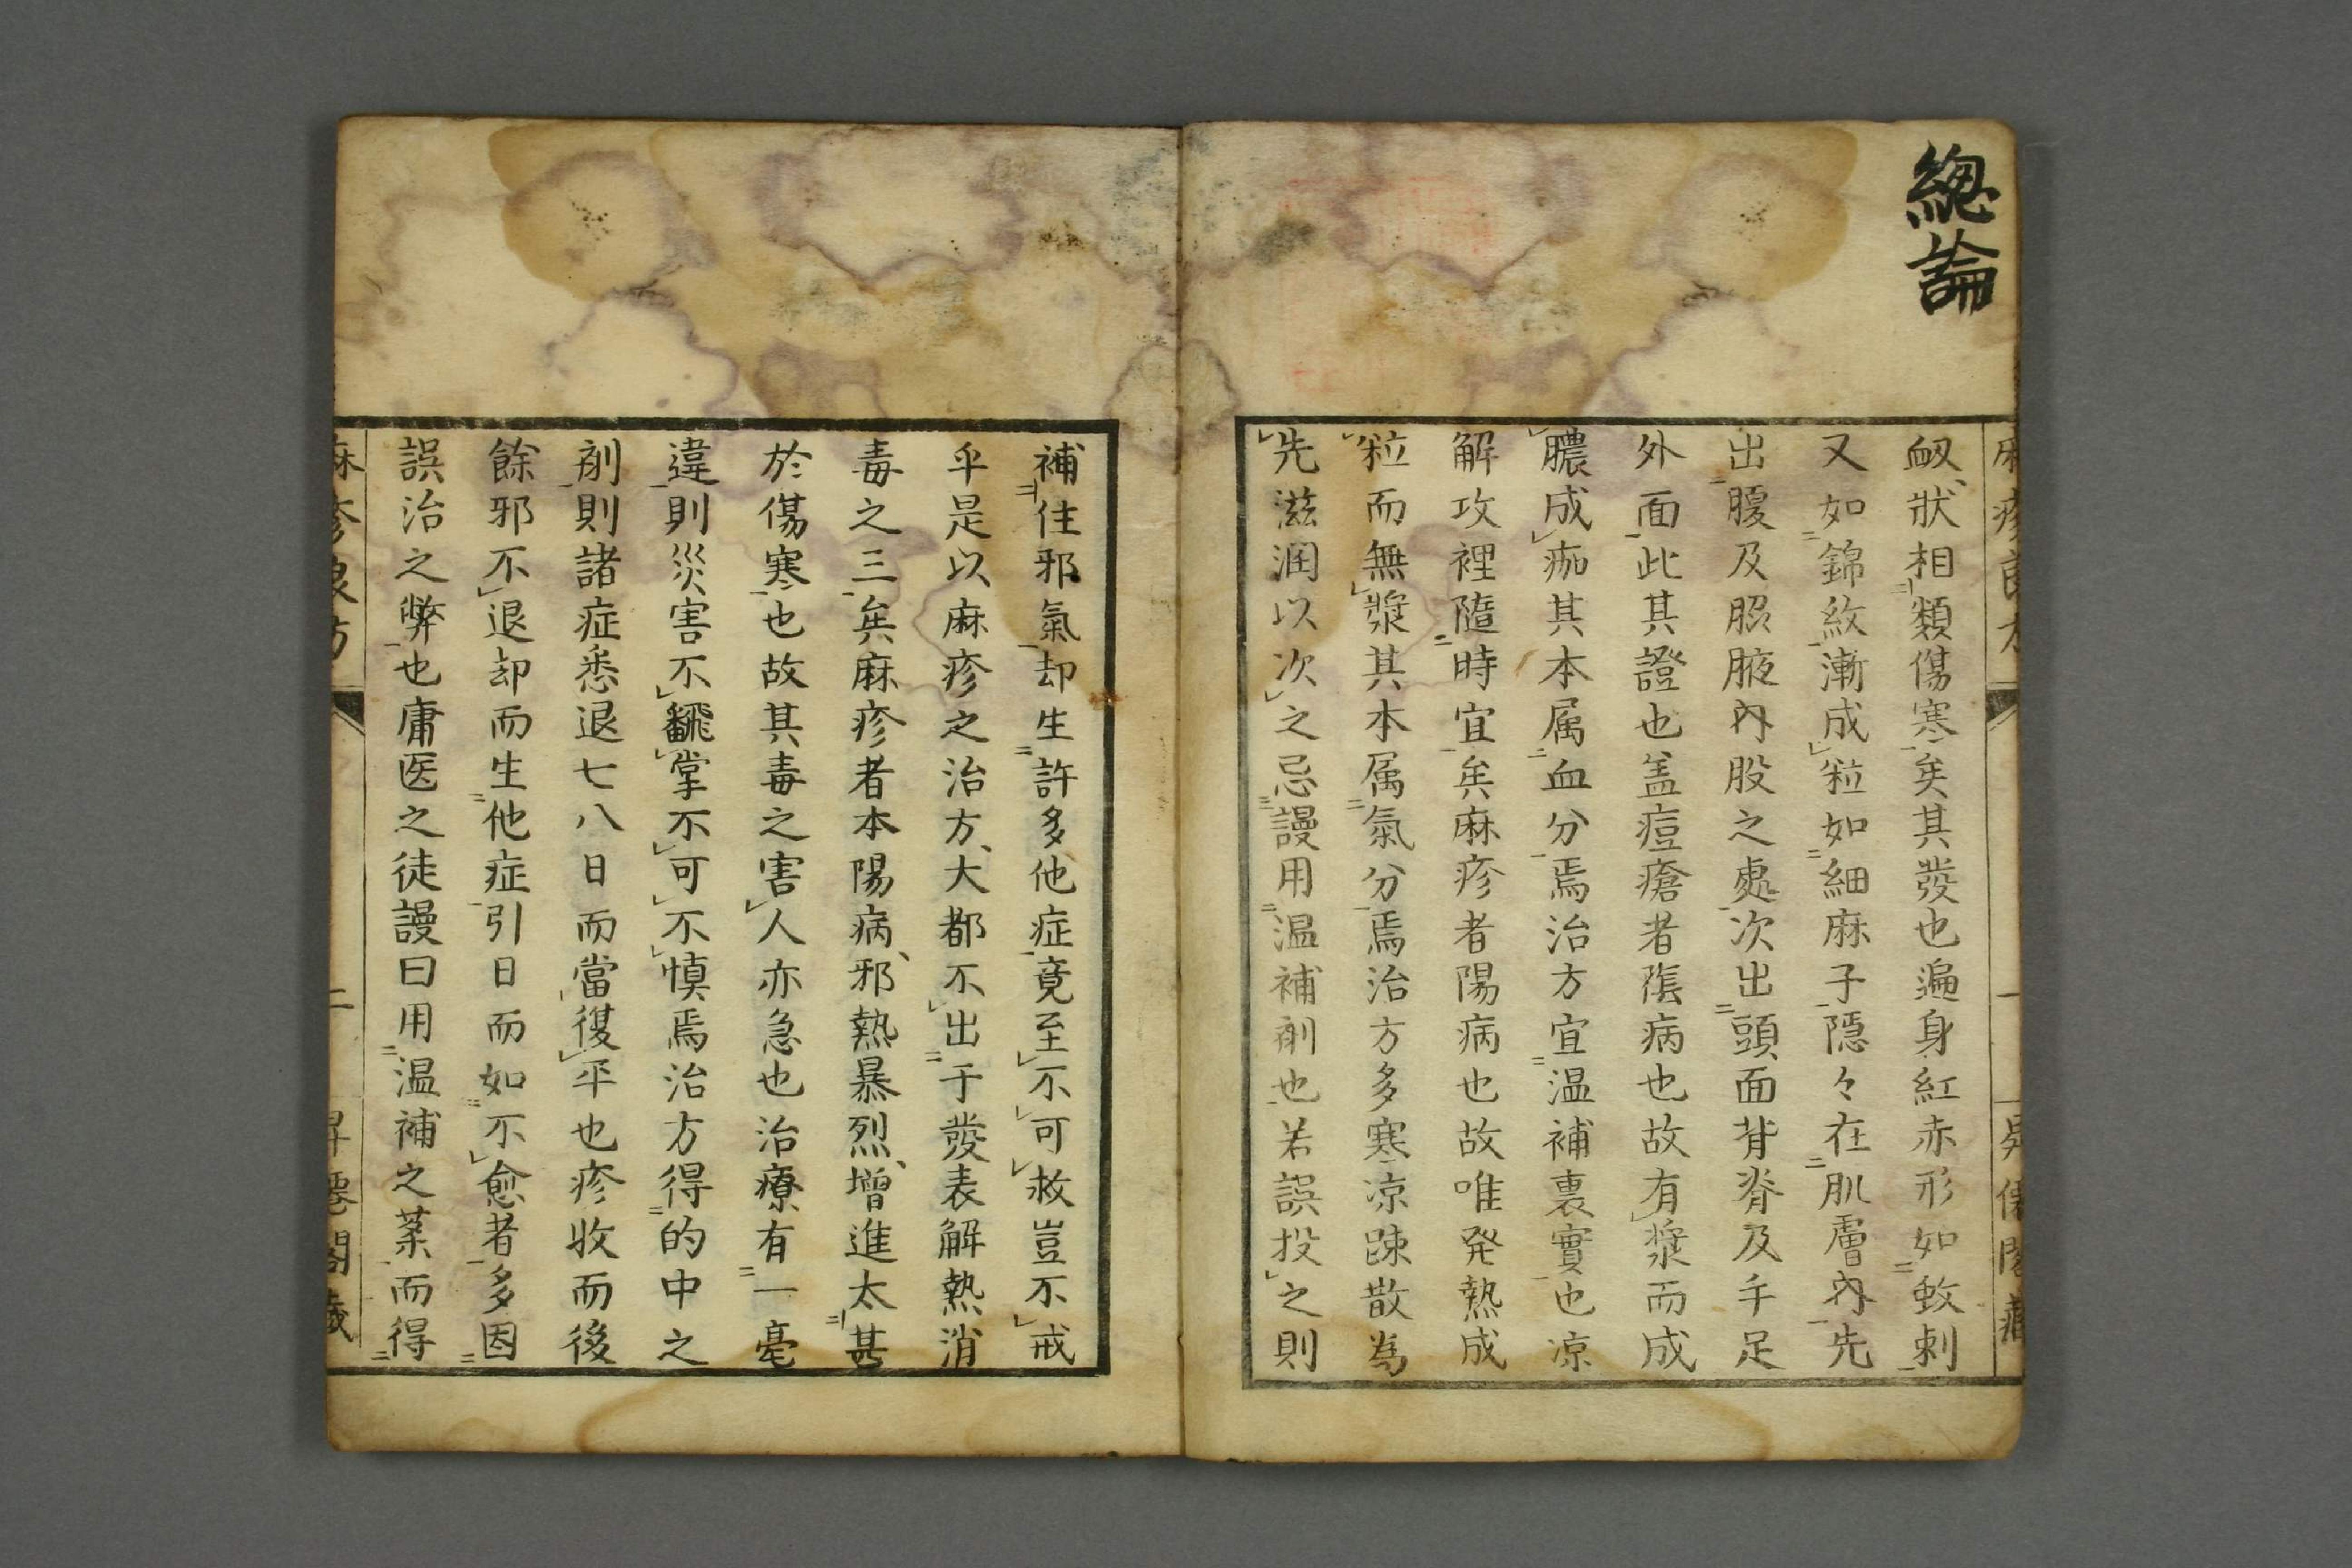 總論
衂狀相類傷寒矣其發也遍身紅赤形如蚊刺
又如錦紋漸成粒如細麻子隱々在肌膚內先
出腹及眼腋內股之處次出頭面背脊及手足
外面此其證也盖痘瘡者陰病也故有漿而成
膿成痂其本属血分焉治方宜温補裏實也凉
解攻裡隨時宜矣麻疹者陽病也故唯発熱成
粒而無漿其本属氣分焉治方多寒凉踈散為
先滋润以次之忌謾用温補剤也若誤投之則
補住邪氣却生許多他症竟至不可救豈不戒
乎是以麻疹之治方大都不出于發表解熱消
毒之三矣麻疹者本陽病邪熱暴烈增進太甚
於傷寒也故其毒之害人亦急也治療有一毫
違則災害不飜掌不可不慎焉治方得的中之
剤則諸症悉退七八日而當復平也疹收而後
餘邪不退却而生他症引日而如不愈者多因
誤治之弊也庸医之徒謾曰用温補之薬而得
麻疹良方 二